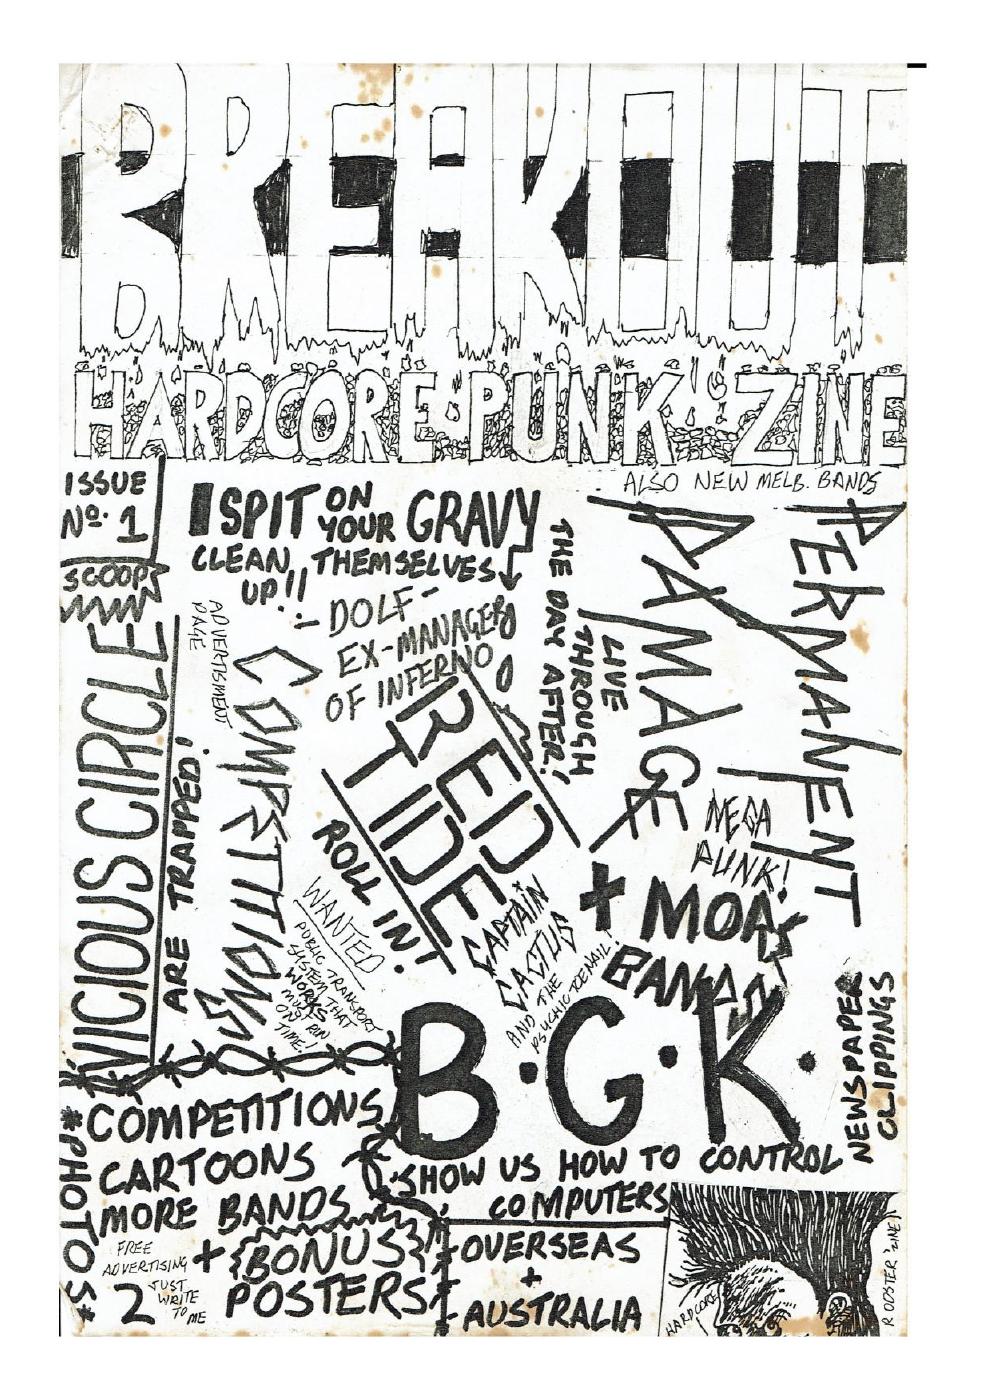 BREAKOUT
HARDCORE PUNK ZINE
ALSO NEW MELB. BANDS
ISSUE
No. 1
SCOOP
I SPIT ON YOUR GRAVY
CLEAN THEMSELVES
UP!!
- DOLF -
EX-MANAGER
OF INFERNO
THE DAY AFTER!
LIVE
THROUGH
PERMANENT
DAMAGE
VICIOUS CIRCLE
ARE TRAPPED!
ADVERTISMENT
PAGE
COMPETITIONS
RED
TIDE
ROLL IN!
WANTED
PUBLIC TRANSPORT
SYSTEM THAT
WORKS
MUST RUN
ON
TIME!
CAPTAIN
CACTUS
AND THE
PSYCHIC TOENAIL!
MEGA
PUNK!
+ MOA
BANDS
B.G.K.
SHOW US HOW TO CONTROL
COMPUTERS
NEWSPAPER
CLIPPINGS
COMPETITIONS
CARTOONS
MORE BANDS
*PHOTOS*
FREE
ADVERTISING
2 JUST
WRITE
TO
ME
+ BONUS
POSTERS
OVERSEAS
+
AUSTRALIA
HARDCORE
ROOSTER ZINE